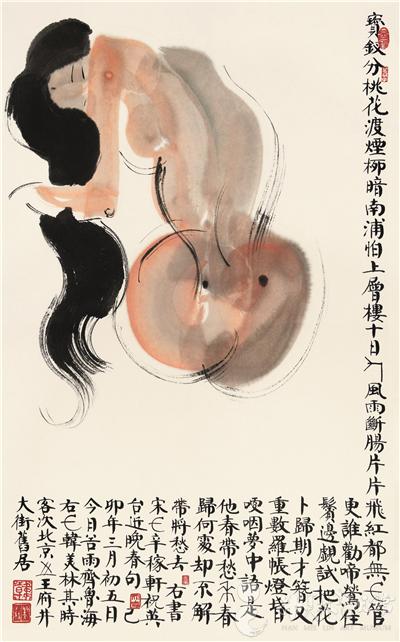 寶釵分桃花渡煙柳暗南浦怕上層樓十日九風雨斷腸片片飛紅都無人管
更誰勸啼鶯住
鬢邊覷試把花
卜歸期才簪又
重數羅帳燈昏
哽咽夢中語是
他春帶愁來春
歸何處却不解
帶將愁去 右書
宋人辛稼軒祝英
台近晚春句 己
卯年三月初五日
今日苦雨齊魯海
右人韓美林其時
客次北京王府井
大街舊居